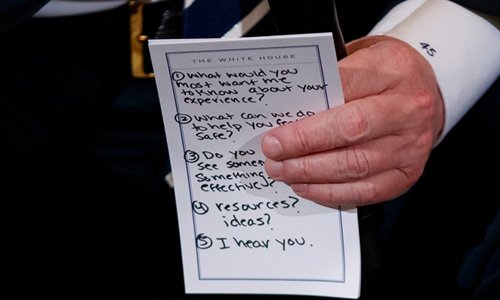 45
THE WHITE HOUSE
① What would you
most want me
to know about your
experience?
② What can we do
to help you feel
safe?
③ Do you
see some
Something
effective?
④ resources?
ideas?
⑤ I hear you.